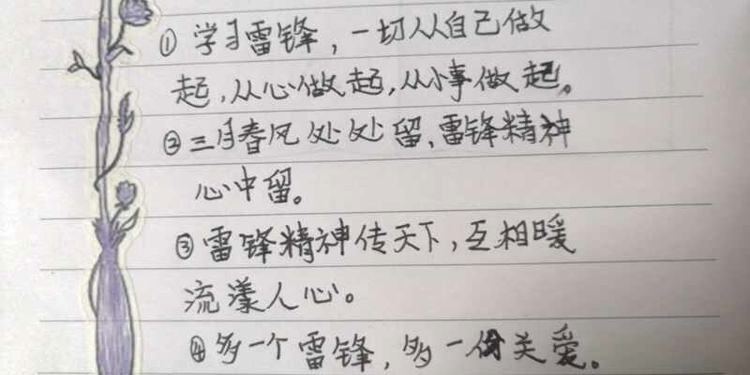 ①学习雷锋，一切从自己做
起，从心做起，从小事做起。
②三月春风处处留，雷锋精神
心中留。
③雷锋精神传天下，互相暖
流漾人心。
④多一个雷锋，多一份关爱。